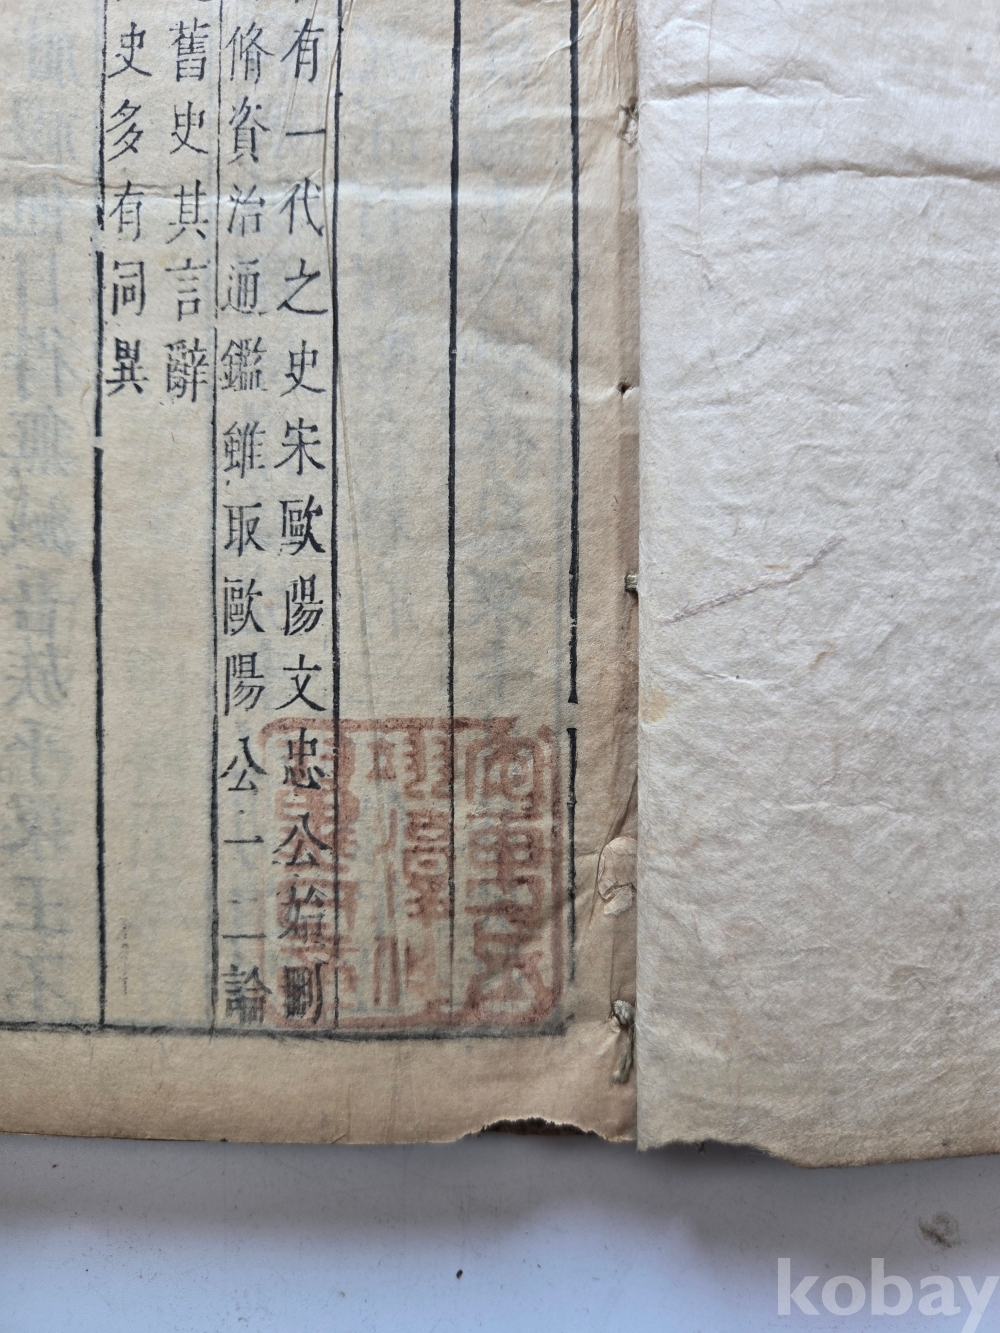 有一代之史宋歐陽文忠公始刪
脩資治通鑑雖取歐陽公一二論
舊史其言辭
史多有同異
kobay